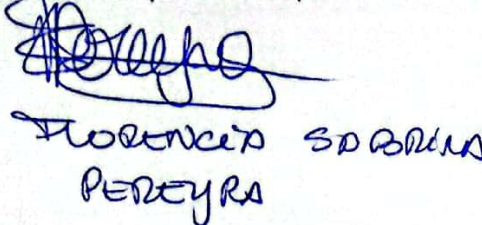 FLORENCIA SABRINA
PEREYRA